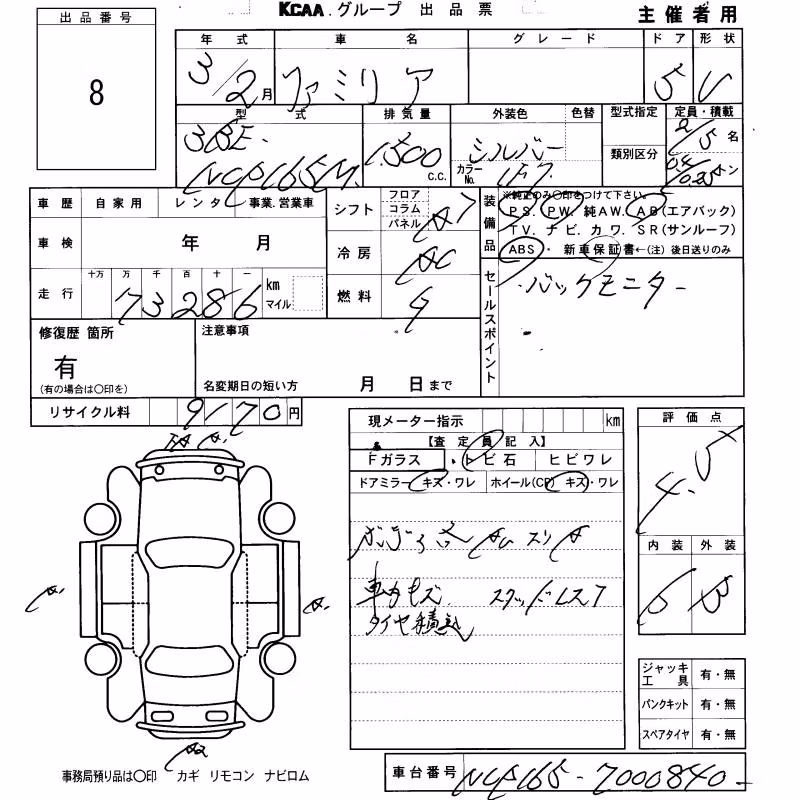 KCAA.グループ 出品票
主催者用
出品番号
8
年式 車名 グレード ドア 形状
3/2月 ファミリア 5 V
型式 排気量 外装色 色替 型式指定 定員・積載
3BE- 1500 c.c. シルバー 2/5名
NCP165M カラーNo. 1F7 類別区分
車歴 自家用 レンタ 事業.営業車
シフト フロア コラム パネル
装備品
※純正のみ○印をつけて下さい。
PS. PW. 純AW. AB(エアバック)
TV. ナビ. カワ. SR(サンルーフ)
ABS・ 新車保証書←(注) 後日送りのみ
車検 年 月
冷房 AC
走行 十万 万 千 百 十 一 km マイル
73286
燃料 G
セールスポイント
・バックモニター
修復歴 箇所
有
(有の場合は○印を)
注意事項
名変期日の短い方 月 日まで
リサイクル料 9170円
現メーター指示 km
【査定員記入】
Fガラス ・トビ石 ヒビワレ
ドアミラー キズ・ワレ ホイール(CP) キズ・ワレ
スリ
車内キズ スタッドレス7
タイヤ積込
評価点
4.5
内装 外装
B B
ジャッキ工具 有・無
パンクキット 有・無
スペアタイヤ 有・無
A2
事務局預り品は○印 カギ リモコン ナビロム
車台番号 NCP165-7000840